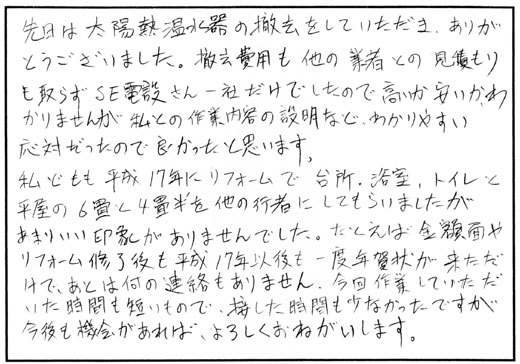 先日は太陽熱温水器の撤去をしていただき、ありが
とうございました。撤去費用も他の業者との見積もり
も取らずSE電設さん一社だけでしたので高いか安いかわ
かりませんが私との作業内容の説明など、わかりやすい
応対だったので良かったと思います。
私どもも平成17年にリフォームで台所、浴室、トイレと
平屋の6畳と4畳半を他の行者にしてもらいましたが
あまりいい印象がありませんでした。たとえば金額面や
リフォーム修了後も平成17年以後も一度年賀状が来ただ
けで、あとは何の連絡もありません。今回作業していただ
いた時間も短いもので、接した時間も少なかったですが
今後も機会があれば、よろしくおねがいします。